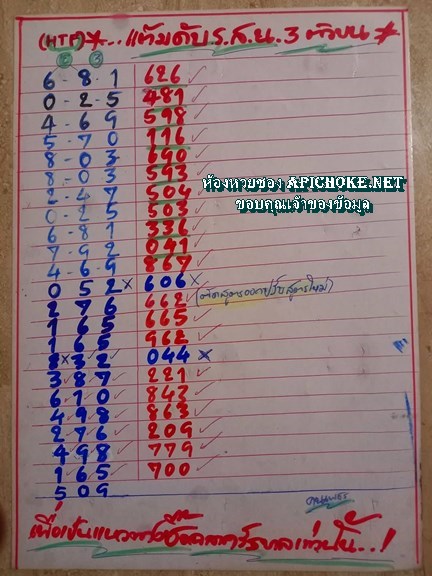 (HTP) *...แต้มดับ ร.ส.น. 3 ตัวบน *
6 - 8 - 1 626 ✓
0 - 2 - 5 481 ✓
4 - 6 - 9 598 ✓
5 - 7 - 0 116 ✓
8 - 0 - 3 690 ✓
8 - 0 - 3 593 ✓
2 - 4 - 7 504
0 - 2 - 5 503
6 - 8 - 1 336
7 - 9 - 2 041
4 - 6 - 9 867
ห้องหวยซอง APICHOKE.NET
ขอบคุณเจ้าของข้อมูล
0 5 2 × 606 ×
2 7 6 662 (ตัดสูตรออกปรับสูตรใหม่)
1 6 5 665 ✓
1 6 5 962 ✓
8 × 3 2 044 ×
3 8 7 221 ✓
6 1 0 842 ✓
4 9 8 863 ✓
2 7 6 209 ✓
4 9 8 779 ✓
1 6 5 700 ✓
5 0 9
เพื่อเป็นแนวทาง เท่านั้น..!